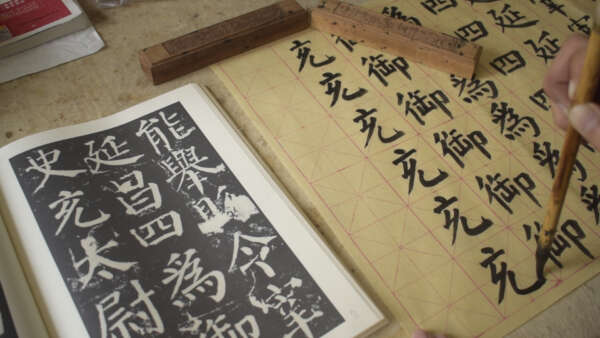 能舉今宰
延昌四為御
史充太尉
延延
四四四
為為為
御御御御御
充充充充充充